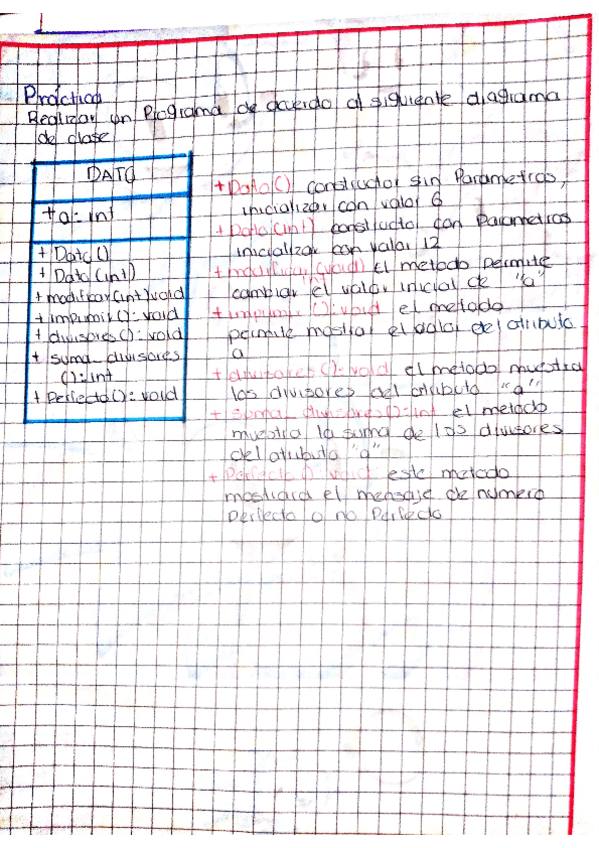 Práctica
Realizar un Programa de acuerdo al siguiente diagrama
de clase
DATO
+a: int
+ Dato()
+ Dato(int)
+ modificar(int)void
+ imprimir(): void
+ divisores(): void
+ suma_divisores
(): int
+ Perfecto(): void
+ Dato() constructor sin Parametros,
inicializar con valor 6
+ Dato(int) constructor con Parametros
inicializar con valor 12
+ modificar (void) El metodo permite
cambiar el valor inicial de "a"
+ imprimir (): void el metodo
permite mostrar el valor del atributo
a
+ divisores (): void el metodo muestra
los divisores del atributo "a"
+ suma_divisores(): int el metodo
muestra la suma de los divisores
del atributo "a"
+ Perfecto () void este metodo
mostrara el mensaje de numero
Perfecto o no Perfecto